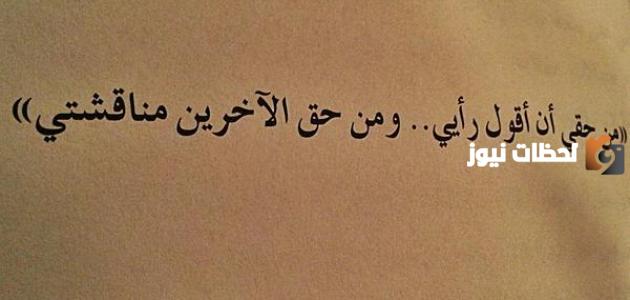 ((من حقي أن أقول رأيي.. ومن حق الآخرين مناقشتي))
لحظات نيوز